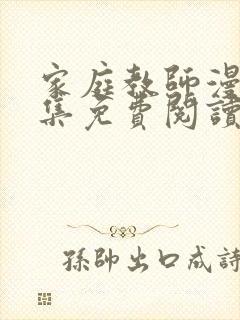 家庭教師漫
集免費閱讀
孫帥出口成詩